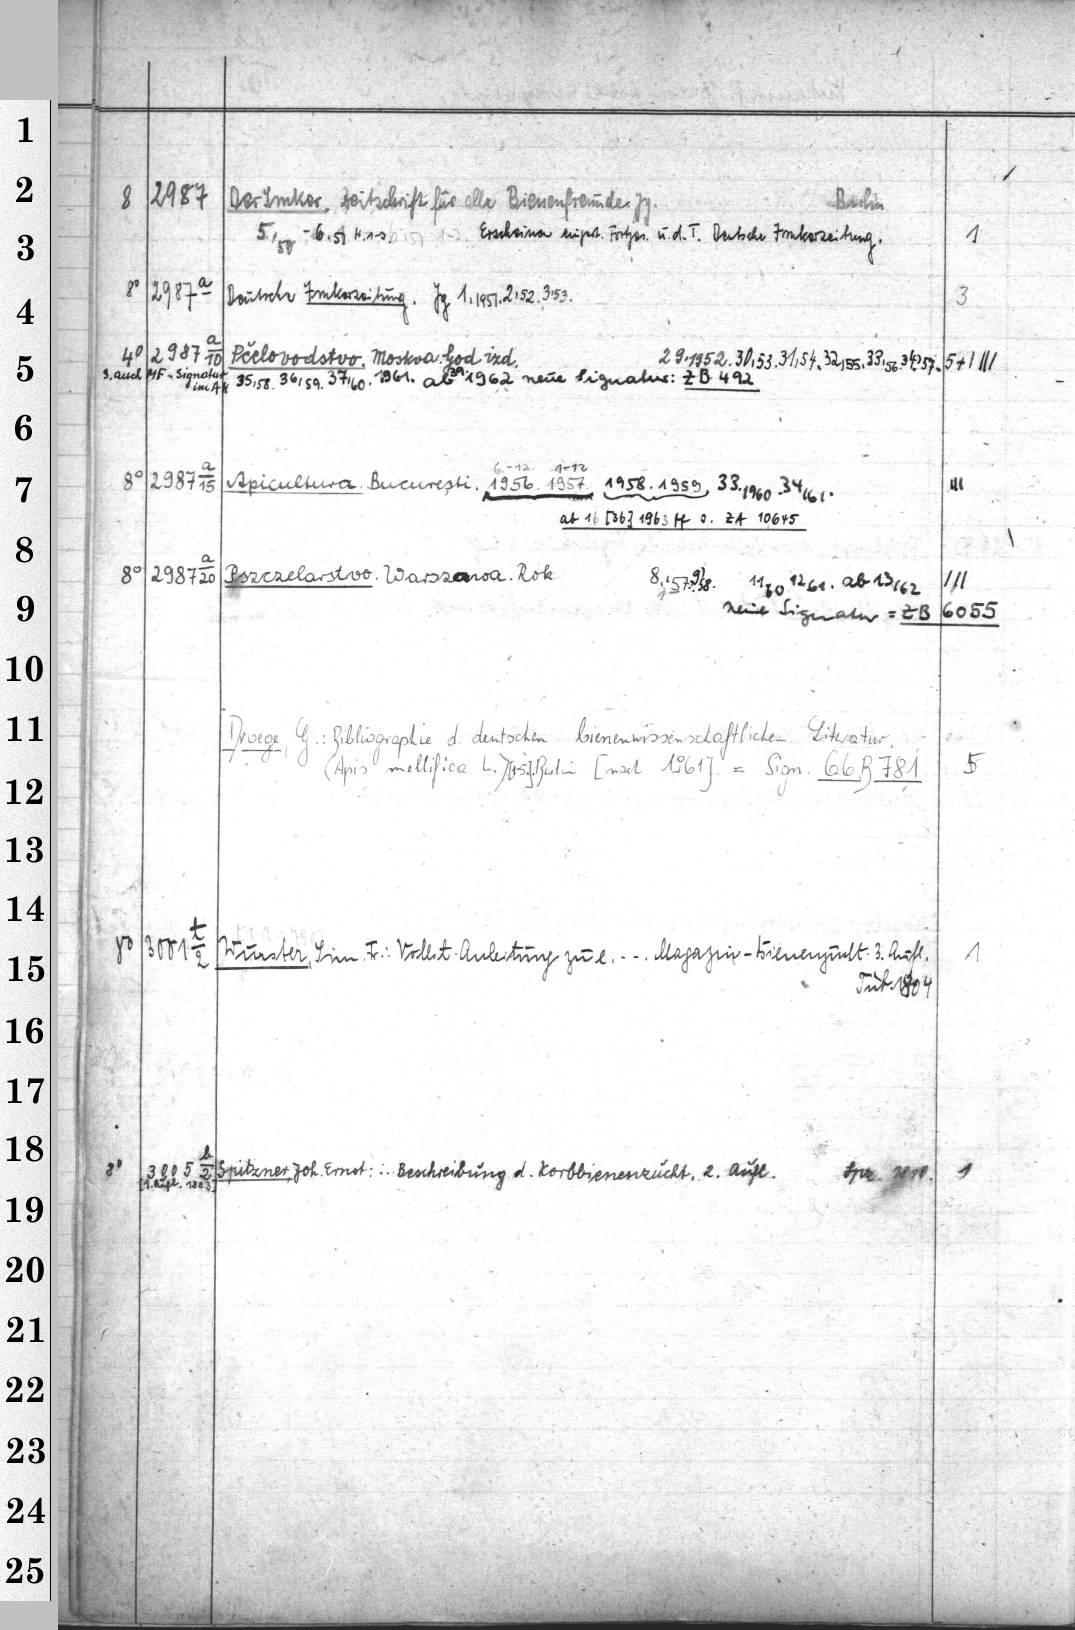 1
2
8 2987 Der Imker, Zeitschrift für alle Bienenfreunde. Jg. Berlin
3
5,50 - 6.51 H.1-3. Erscheinen eingest. Forts. u. d. T. Deutsche Imkerzeitung. 1
8° 2987 a Deutsche Imkerzeitung. Jg 1,1951. 2,52. 3,53. 3
4
4° 2987 a/10 Pčelovodstvo. Moskva. God izd. 29.1952. 30,53. 31,54. 32,55. 33,56. 34,57. 5+1 III
5
s. auch MF-Signatur im AK 35,58. 36,59. 37,60. 1961. ab 39.1962 neue Signatur: ZB 492
6
6.-12. 1-12
7
8° 2987 a/15 Apicultura. Bucureşti. 1956. 1957. 1958. 1959, 33.1960. 34,61. III
ab [36] 1963 ff s. ZA 10645
8
8° 2987 a/20 Pszczelarstwo. Warszawa. Rok 8,57. 9,58. 11,60 12,61. ab 13,62 III
9
neue Signatur = ZB 6055
10
11
Droege, G.: Bibliographie d. deutschen bienenwissenschaftlichen Literatur.
(Apis mellifica L.) [1-5]. Berlin [nach 1961] = Sign. 66 B 781 5
12
13
14
8° 3001 t/2 Wurster, Sim. Fr.: Vollst. Anleitung zu e. ... Magazin-Bienenzucht. 3. Aufl. 1
15
Tüb. 1804
16
17
18
8° 3005 b/2 Spitzner, Joh. Ernst: .. Beschreibung d. Korbbienenzucht. 2. Aufl. Lpz. 1810. 1
[1. Aufl. 1803]
19
20
21
22
23
24
25